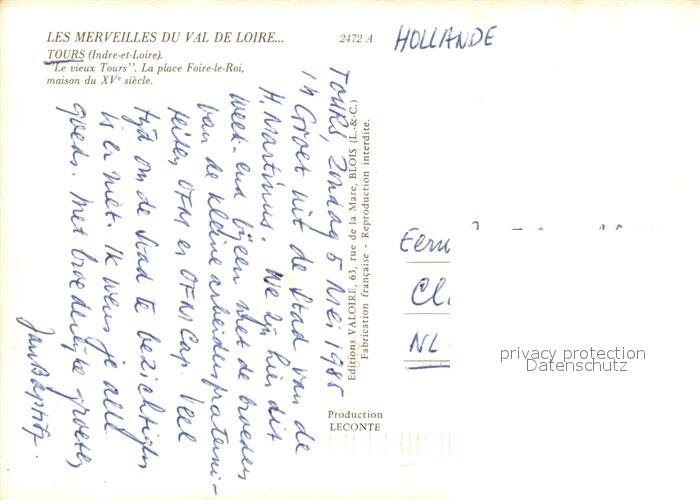 LES MERVEILLES DU VAL DE LOIRE...
2472 A
TOURS (Indre-et-Loire).
"Le vieux Tours". La place Foire-le-Roi,
maison du XVe siècle.
HOLLANDE
TOURS, Zondag 5 Mei 1985
'n Groet uit de Stad van de
H. Martinus. We zijn hier dit
week-end bijeen met de broeders
van de kleine arbeidersfraterni-
teiten, OFM en OFMCap. Veel
tijd om de stad te bezichtigen
is er niet. Ik wens je alle
goeds. Met broederlijke groeten,
Jan Baptist.
Editions VALOIRE, 63, rue de la Mare, BLOIS (L.-&-C.)
Fabrication française - Reproduction interdite.
Eerw
NL
privacy protection
Datenschutz
Production
LECONTE